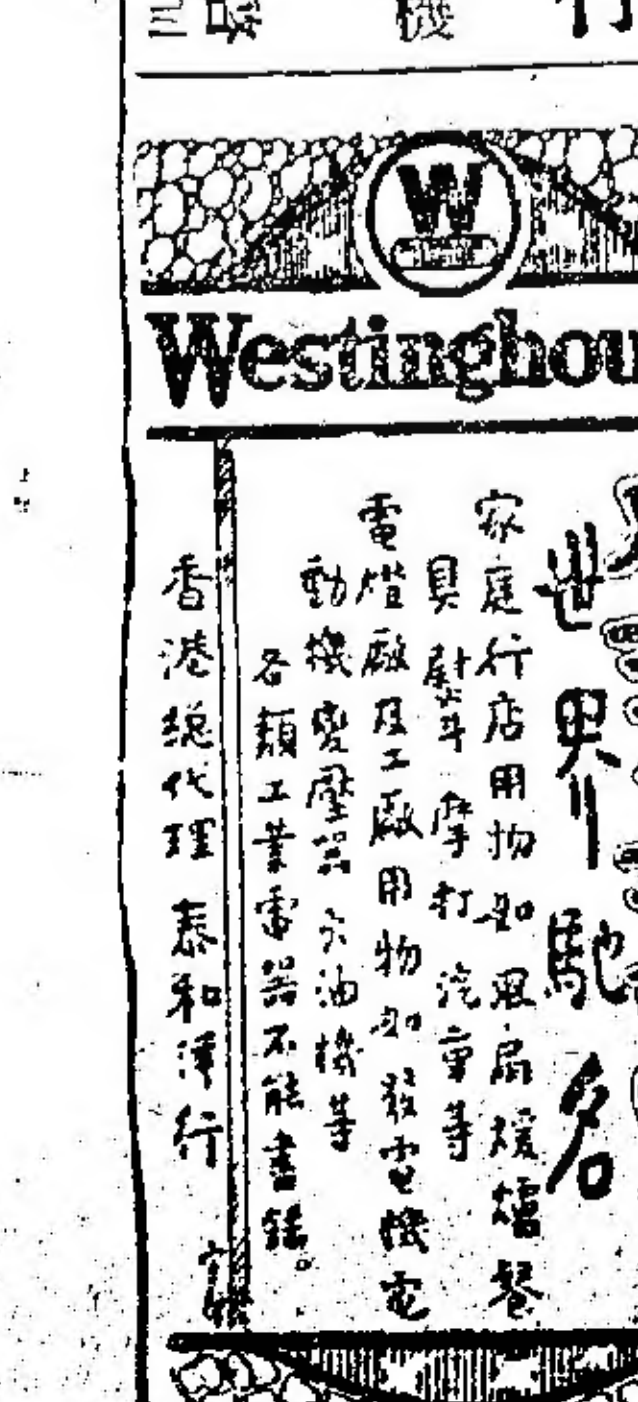 機
W
Westinghou
世界馳名
家庭行店用物如風扇煖爐琴
具熨斗摩打汽車等
電燈廠及工廠用物如發電機電
動機變壓器火油機等
各類工業電器不能書錄。
香港總代理 泰和洋行